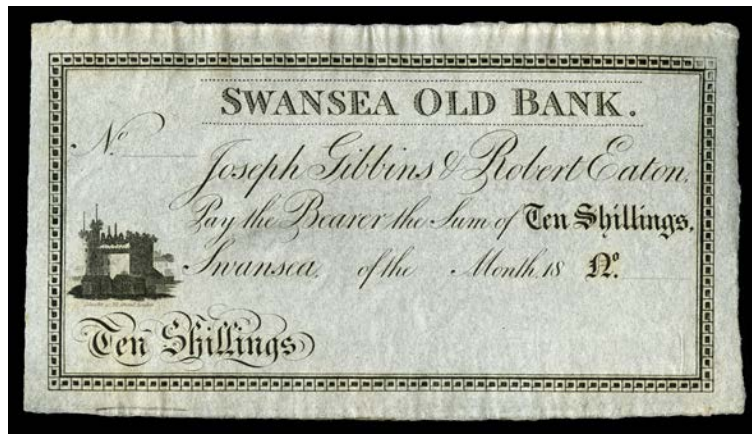 SWANSEA OLD BANK.
No
Joseph Gibbins & Robert Eaton,
Pay the Bearer the Sum of Ten Shillings,
Swansea, of the Month, 18 No.
Ten Shillings